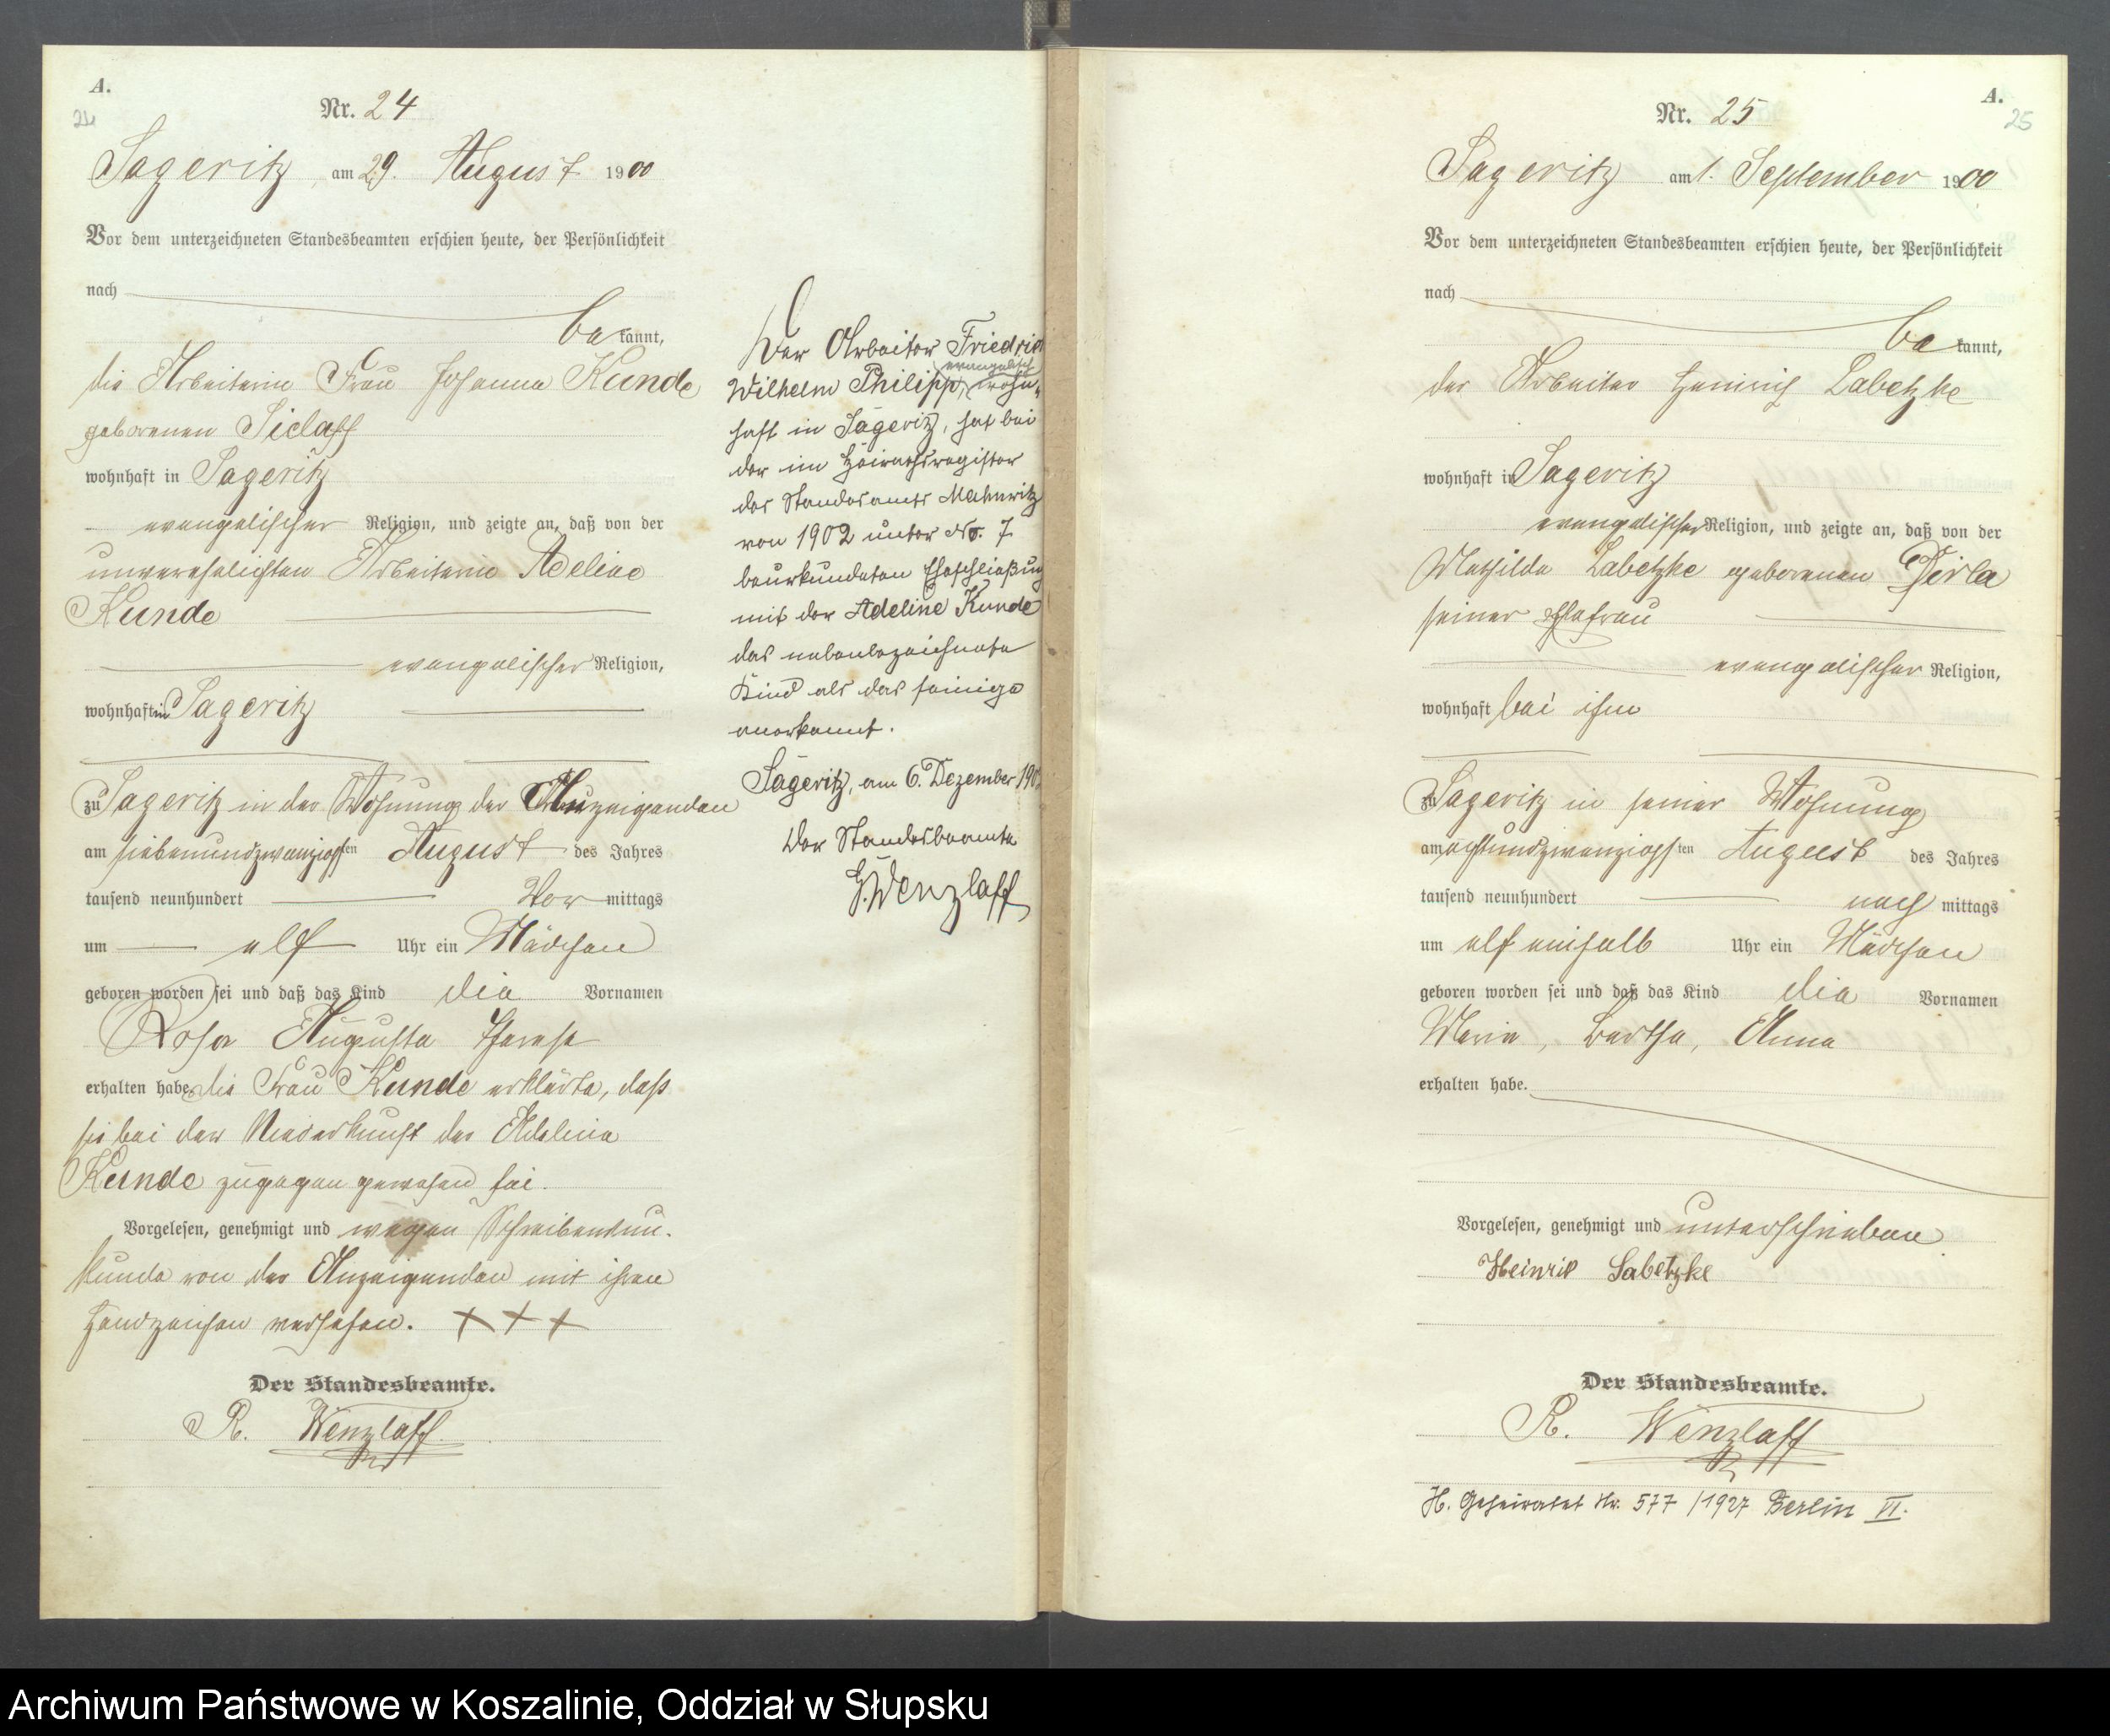 A.
24
Nr. 24
Sageritz, am 29. August 1900
Vor dem unterzeichneten Standesbeamten erschien heute, der Persönlichkeit
nach
bekannt,
die Arbeiterin Frau Johanna Kunde
geborenen
wohnhaft in Sageritz
evangelischer Religion, und zeigte an, daß von der
unverehelichten Arbeiterin Adeline
Kunde
evangelischer Religion,
wohnhaft in Sageritz
zu Sageritz in der Wohnung der Anzeigenden
am siebenundzwanzigsten August des Jahres
tausend neunhundert Vor mittags
um elf Uhr ein Mädchen
geboren worden sei und daß das Kind die Vornamen
Rosa Augusta Therese
erhalten habe, die Frau Kunde erklärte, daß
sie bei der Niederkunft der Adeline
Kunde zugegen gewesen sei.
Vorgelesen, genehmigt und wegen Schreibensun-
kunde von der Anzeigenden mit ihren
Handzeichen versehen. + + +
Der Standesbeamte.
R. Wenzlaff
Der Arbeiter Friedrich
evangelisch
Wilhelm Philipp, wohn-
haft in Sageritz, hat bei
der im Heirathsregister
des Standesamts Mahnwitz
von 1902 unter No. 7
beurkundeten Eheschließung
mit der Adeline Kunde
das nebenbezeichnete
Kind als das seinige
anerkannt.
Sageritz, am 6. Dezember
Der Standesbeamte
Wenzlaff
A.
25
Nr. 25
Sageritz am 1. September 1900
Vor dem unterzeichneten Standesbeamten erschien heute, der Persönlichkeit
nach
bekannt,
der Arbeiter Heinrich Labetzke
wohnhaft in Sageritz
evangelischer Religion, und zeigte an, daß von der
Mathilde Labetzke geborenen
seiner Ehefrau
evangelischer Religion,
wohnhaft bei ihm
zu Sageritz in seiner Wohnung
am achtundzwanzigsten August des Jahres
tausend neunhundert nach mittags
um elf einhalb Uhr ein Mädchen
geboren worden sei und daß das Kind die Vornamen
Marie, Bertha, Anna
erhalten habe.
Vorgelesen, genehmigt und unterschrieben
Labetzke
Der Standesbeamte.
R. Wenzlaff
H. Geheiratet Nr. 577/1927 Berlin VI.
Archiwum Państwowe w Koszalinie, Oddział w Słupsku